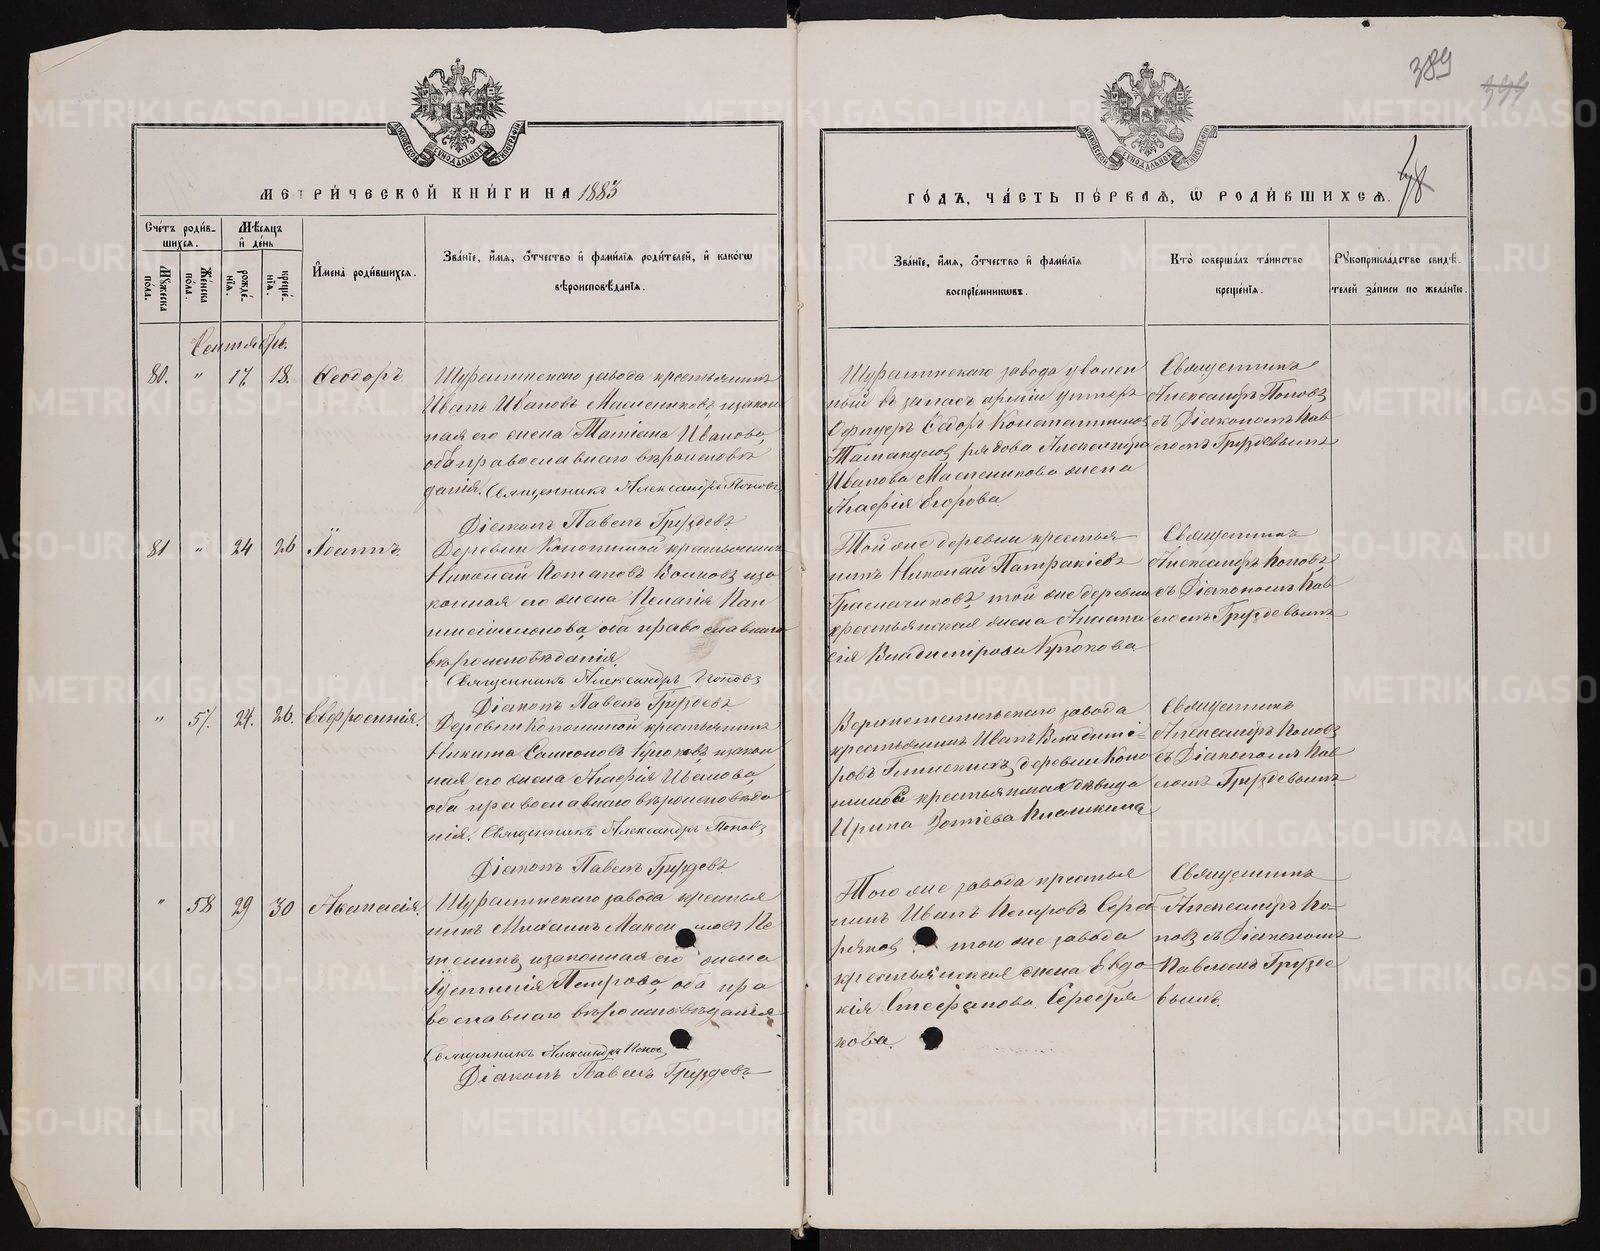 389
394
48
МЕТРИ́ЧЕСКОЙ КНИ́ГИ НА 1883
ГО́ДЪ, ЧА́СТЬ ПЕ́РВАЯ, Ѡ РОДИ́ВШИХСЯ.
Сче́тъ роди́в-
шихся.
Мѣ́сяцъ
и҆ де́нь
Му́жеска
по́ла.
Же́нска
по́ла.
рожде́
нїя.
креще́
нїя.
И҆мена̀ роди́вшихся.
Зва́нїе, и҆́мя, ѻ҆́тчество и҆ фами́лїя роди́телей, и҆ како́гѡ
вѣроисповѣ́данїя.
Зва́нїе, и҆́мя, ѻ҆́тчество и҆ фами́лїя
воспрїе́мниковъ.
Кто̀ соверша́лъ та́инство
креще́нїя.
Рꙋкоприкла́дство свидѣ́-
телей за́писи по жела́нїю.
Сентябрь.
80. " 17. 18. Ѳеодоръ
Шуралинскаго завода крестьянинъ
Иванъ Ивановъ Масленниковъ, и закон
ная его жена Татіана Иванова,
оба православнаго вѣроисповѣ
данія. Священникъ Александръ Поповъ
Діаконъ Павелъ Груздевъ.
Шуралинскаго завода уволен
ный въ запасъ арміи унтеръ
Офицеръ Ѳедоръ Константиновъ
рядова Александра
Иванова Масленникова жена
Агафія Егорова.
Священникъ
Александръ Поповъ
съ Діакономъ Пав
ломъ Груздевымъ
81 " 24 26 Іоаннъ
Деревни Конопиной крестьянинъ
Николай Потаповъ Волковъ, и за
конная его жена Пелагія Пан
телеймонова, оба православнаго
вѣроисповѣданія.
Священникъ Александръ Поповъ
Діаконъ Павелъ Груздевъ.
Той же деревни крестья
нинъ Николай Патракіевъ
той же деревни
крестьянская жена Анаста
сія Владимірова Крюкова
Священникъ
Александръ Поповъ
съ Діакономъ Пав
ломъ Груздевымъ
" 57. 24. 26. Евфросинія.
Деревни Конопиной крестьянинъ
Никита Самсоновъ Крюковъ, и закон
ная его жена Агафія Иванова,
оба православнаго вѣроисповѣда
нія. Священникъ Александръ Поповъ
Діаконъ Павелъ Груздевъ.
Верхнетагильскаго завода
крестьянинъ Иванъ Владимі-
ровъ деревни Коно
пиной крестьянская дѣвица
Ирина Зотіева
Священникъ
Александръ Поповъ
съ Діакономъ Пав
ломъ Груздевымъ
" 58 29 30 Аѳанасія.
Шуралинскаго завода крестья
нинъ Михаилъ Максимовъ Пе
телинъ, и законная его жена
Іустинія Петрова, оба пра
вославнаго вѣроисповѣданія
Священникъ Александръ Поповъ
Діаконъ Павелъ Груздевъ.
Того же завода крестья
нинъ Иванъ Петровъ Сереб-
ряковъ, того же завода
крестьянская жена Евдо-
кія Стефанова Серебря
кова.
Священникъ
Александръ По-
повъ съ Діакономъ
Павломъ Грузде
вымъ.
METRIKI.GASO-URAL.RU